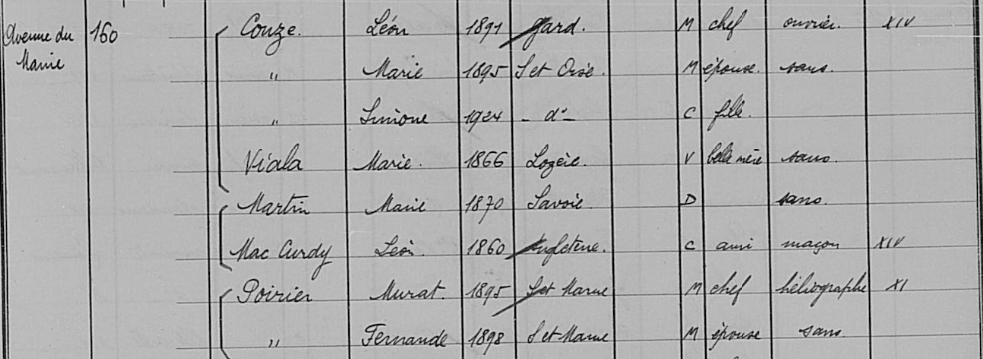 Avenue du 160 Couze. Léon 1897 Gard. M chef ouvrier. XIV
Mairie " Marie 1895 S et Oise. M épouse. sans.
" Simone 1924 - d°- C fille.
Viala Marie. 1866 Lozère. V belle mère sans.
Martin Marie 1870 Savoie. D sans.
Mac Curdy Léon. 1860 Angleterre. C ami maçon XIV
Poirier Murat. 1895 S et Marne M chef héliographe XI
" Fernande 1898 S et Marne M épouse sans.